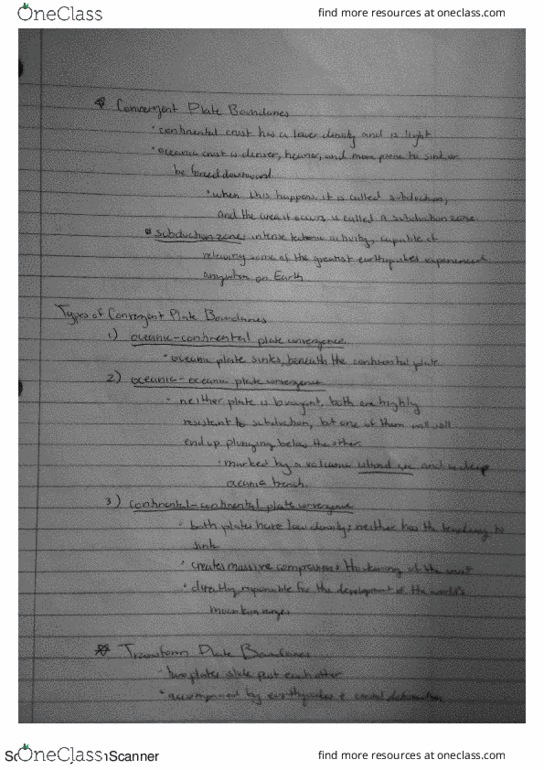 OneClass
find more resources at oneclass.com
Convergent Plate Boundaries
• continental crust has a lower density and is light
• oceanic crust is denser, heavier, and more prone to sink or
be forced downward
• when this happens, it is called subduction,
and the area it occurs is called a subduction zone
subduction zone: intense tectonic activity, capable of
releasing some of the greatest earthquakes experienced
anywhere on Earth
Types of Convergent Plate Boundaries
1) oceanic-continental plate convergence
• oceanic plate sinks, beneath the continental plate
2) oceanic-oceanic plate convergence
• neither plate is buoyant, both are highly
resistant to subduction, but one of them will
end up plunging below the other
• marked by a volcanic island arc and
oceanic trench.
3) continental-continental plate convergence
• both plates have low density; neither has the tendency to
sink
• creates massive compression & thickening of the crust
• directly responsible for the development of the world's
mountain ranges
Transform Plate Boundaries
- two plates slide past each other
• accompanied by earthquakes & crustal deformation
OneClass
Scanner
find more resources at oneclass.com